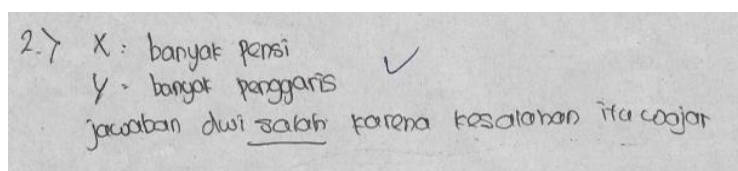 2.) X : banyak pensi
Y = banyak penggaris
jawaban dwi salah karena kesalahan itu wajar